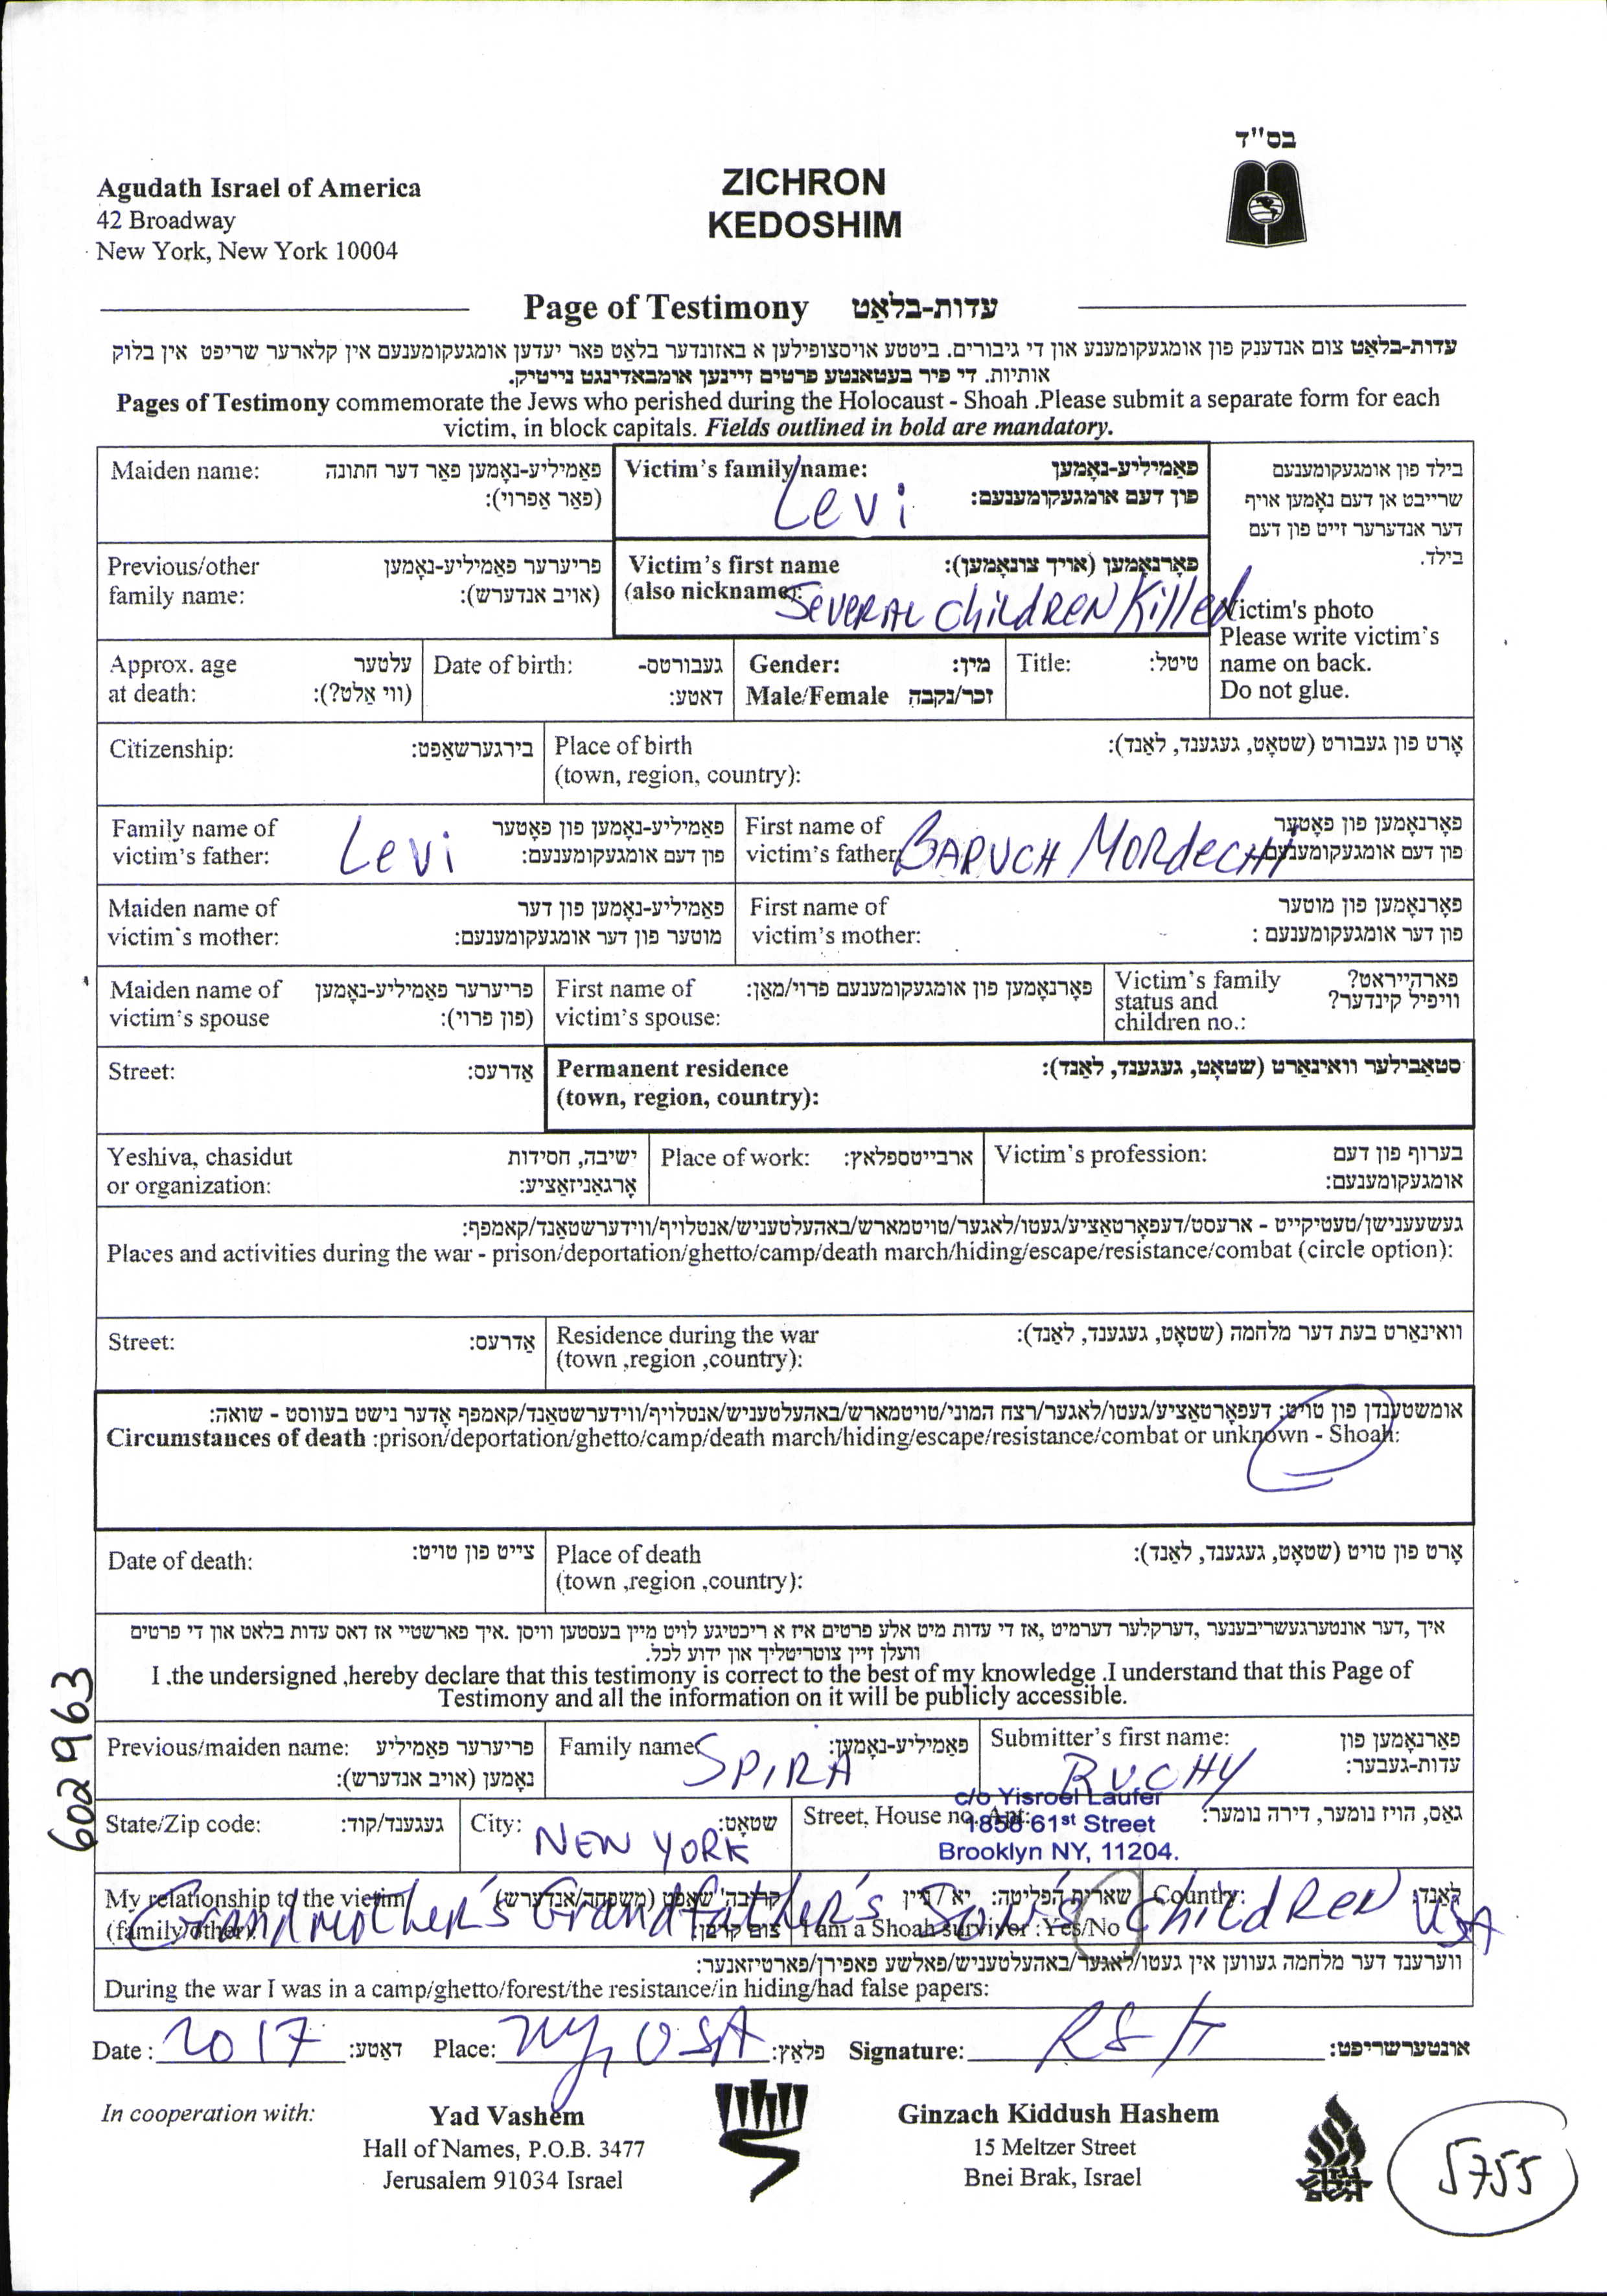 בס"ד
Agudath Israel of America
42 Broadway
New York, New York 10004
ZICHRON
KEDOSHIM
Page of Testimony עדות-בלאַט
עדות-בלאַט צום אנדענק פון אומגעקומענע און די גיבורים. ביטע אויסצופילען א באזונדער בלאט פאר יעדען אומגעקומענעם אין קלארער שריפט אין בלוק
אותיות. די פיר בעטאנטע פרטים זיינען אומבאדינגט נייטיק.
Pages of Testimony commemorate the Jews who perished during the Holocaust - Shoah .Please submit a separate form for each
victim, in block capitals. Fields outlined in bold are mandatory.
Maiden name: פאַמיליע-נאָמען פאַר דער חתונה
(פאַר אַפרוי):
Victim's family name: פאַמיליע-נאָמען
פון דעם אומגעקומענעם:
Levi
בילד פון אומגעקומענעם
שרייבט אן דעם נאָמען אויף
דער אנדערער זייט פון דעם
בילד.
Previous/other פריערער פאַמיליע-נאָמען
family name: (אויב אנדערש):
Victim's first name פאָרנאָמען (אויך צונאָמען):
(also nickname):
SEVERAL ChildREN Killed
Victim's photo
Please write victim's
name on back.
Do not glue.
Approx. age עלטער
at death: (ווי אַלט?):
Date of birth: געבורטס-
דאַטע:
Gender: מין:
Male/Female זכר/נקבה
Title: טיטל:
Citizenship: בירגערשאַפט:
Place of birth אָרט פון געבורט (שטאָט, געגענד, לאַנד):
(town, region, country):
Family name of פאַמיליע-נאָמען פון פאָטער
victim's father: פון דעם אומגעקומענעם:
Levi
First name of פאָרנאָמען פון פאָטער
victim's father: פון דעם אומגעקומענעם
BARUCH MORdECHI
Maiden name of פאַמיליע-נאָמען פון דער
victim's mother: מוטער פון דער אומגעקומענעם:
First name of פאָרנאָמען פון מוטער
victim's mother: פון דער אומגעקומענעם :
Maiden name of פריערער פאַמיליע-נאָמען
victim's spouse (פון פרוי):
First name of פאָרנאָמען פון אומגעקומענעם פרוי/מאַן:
victim's spouse:
Victim's family פארהייראט?
status and וויפיל קינדער?
children no.:
Street: אַדרעס:
Permanent residence סטאַבילער וואוינאַרט (שטאָט, געגענד, לאַנד):
(town, region, country):
Yeshiva, chasidut ישיבה, חסידות
or organization: אָרגאַניזאַציע:
Place of work: ארבייטספלאץ:
Victim's profession: בערוף פון דעם
אומגעקומענעם:
געשעענישן/טעטיקייט - ארעסט/דעפאָרטאַציע/געטו/לאגער/טויטמארש/באהעלטעניש/אנטלויף/ווידערשטאַנד/קאמפף:
Places and activities during the war - prison/deportation/ghetto/camp/death march/hiding/escape/resistance/combat (circle option):
Street: אַדרעס:
Residence during the war וואוינאַרט בעת דער מלחמה (שטאָט, געגענד, לאַנד):
(town ,region ,country):
אומשטענדן פון טויט: דעפאָרטאַציע/געטו/לאגער/רצח המוני/טויטמארש/באהעלטעניש/אנטלויף/ווידערשטאַנד/קאמפף אָדער נישט בעוואוסט - שואה:
Circumstances of death :prison/deportation/ghetto/camp/death march/hiding/escape/resistance/combat or unknown - Shoah:
Date of death: צייט פון טויט:
Place of death אָרט פון טויט (שטאָט, געגענד, לאַנד):
(town ,region ,country):
איך ,דער אונטערגעשריבענער ,דערקלער דערמיט ,אז די עדות מיט אלע פרטים איז א ריכטיגע לויט מיין בעסטען וויסן .איך פארשטיי אז דאס עדות בלאט און די פרטים
וועלן זיין צוטריטליך און ידוע לכל.
I ,the undersigned ,hereby declare that this testimony is correct to the best of my knowledge .I understand that this Page of
Testimony and all the information on it will be publicly accessible.
602963
Previous/maiden name: פריערער פאַמיליע
נאָמען (אויב אנדערש):
Family name: פאַמיליע-נאָמען:
SPIRA
Submitter's first name: פאָרנאָמען פון
עדות-געבער:
RUCHY
State/Zip code: געגענד/קוד:
City: שטאָט:
NEW YORK
Street, House no. Apt: גאַס, הויז נומער, דירה נומער:
c/o Yisroel Laufer
1858 61st Street
Brooklyn NY, 11204.
My relationship to the victim קרובה'שאַפט (משפחה/אנדערש)
(family/other): צום קרבן:
Grandmother's Grandfather's Son's Children
שארית הפליטה: יא / ניין
I am a Shoah survivor : Yes/No
Country: לאַנד:
USA
ווערענד דער מלחמה געווען אין געטו/לאגער/באהעלטעניש/פאלשע פאפירן/פארטיזאנער:
During the war I was in a camp/ghetto/forest/the resistance/in hiding/had false papers:
Date : 2017 דאַטע: Place: NY, USA פלאַץ: Signature: אונטערשריפט:
In cooperation with:
Yad Vashem
Hall of Names, P.O.B. 3477
Jerusalem 91034 Israel
Ginzach Kiddush Hashem
15 Meltzer Street
Bnei Brak, Israel
5755